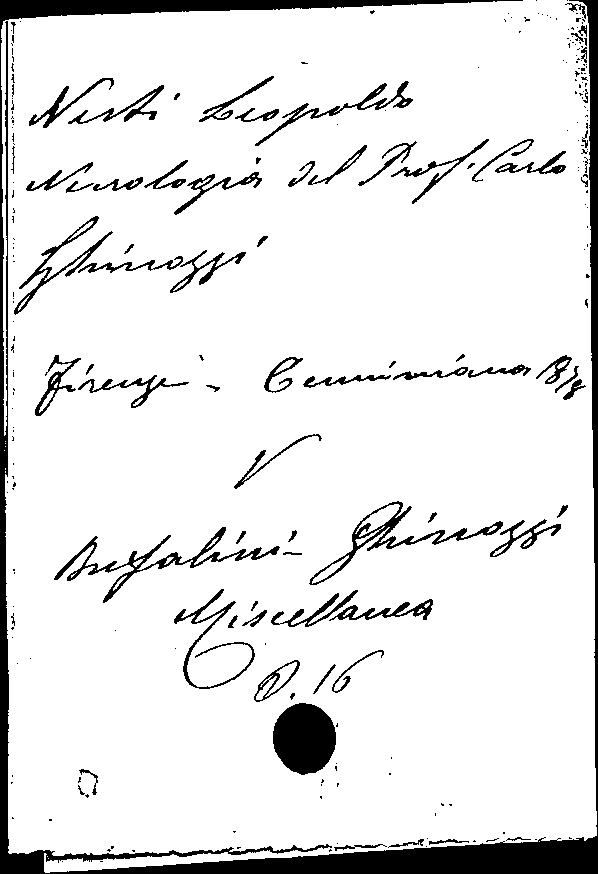 Nesti Leopoldo
Necrologia del Prof. Carlo
Ghinozzi
Firenze - Cenniniana 1878
V
Bufalini - Ghinozzi
Miscellanea
O. 16